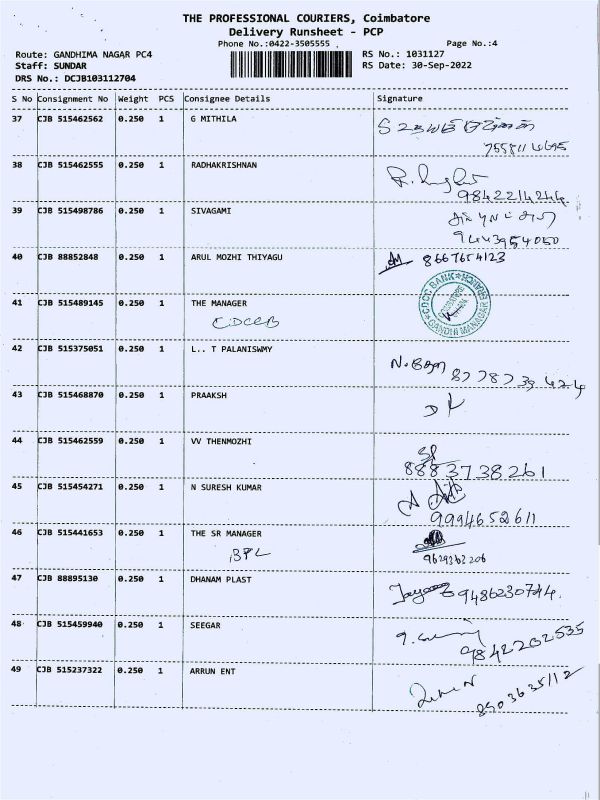 THE PROFESSIONAL COURIERS, Coimbatore
Delivery Runsheet - PCP
Phone No.:0422-3505555 Page No.:4
Route: GANDHIMA NAGAR PC4 RS No.: 1031127
Staff: SUNDAR RS Date: 30-Sep-2022
DRS No.: DCJB103112704
S No Consignment No Weight PCS Consignee Details Signature
37 CJB 515462562 0.250 1 G MITHILA
38 CJB 515462555 0.250 1 RADHAKRISHNAN
9842214244
39 CJB 515498786 0.250 1 SIVAGAMI
9443954050
40 CJB 88852848 0.250 1 ARUL MOZHI THIYAGU 8667654123
41 CJB 515489145 0.250 1 THE MANAGER
CDCCB
CDCC BANK BRANCH GANDHI MANAGAR
42 CJB 515375051 0.250 1 L.. T PALANISWMY
8778739424
43 CJB 515468870 0.250 1 PRAAKSH
44 CJB 515462559 0.250 1 VV THENMOZHI
8883738261
45 CJB 515454271 0.250 1 N SURESH KUMAR
9994652611
46 CJB 515441653 0.250 1 THE SR MANAGER
BPL 9629362206
47 CJB 88895130 0.250 1 DHANAM PLAST 9486230744.
48 CJB 515459940 0.250 1 SEEGAR
9842202535
49 CJB 515237322 0.250 1 ARRUN ENT
8903635112